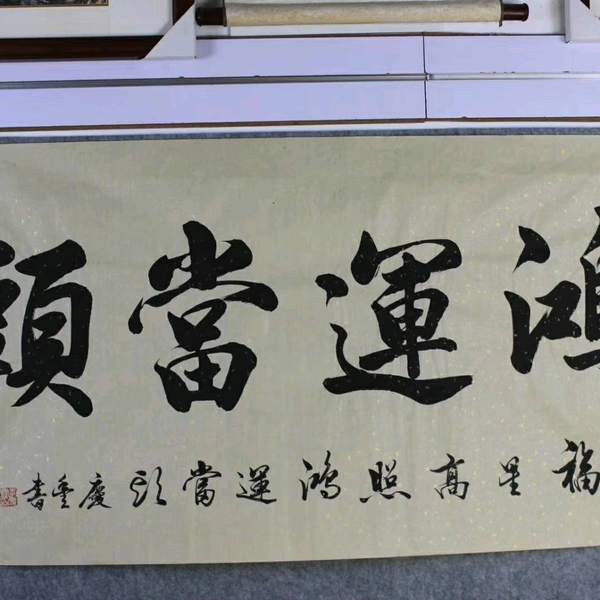 鴻運當頭
福星高照鴻運當头慶丰書